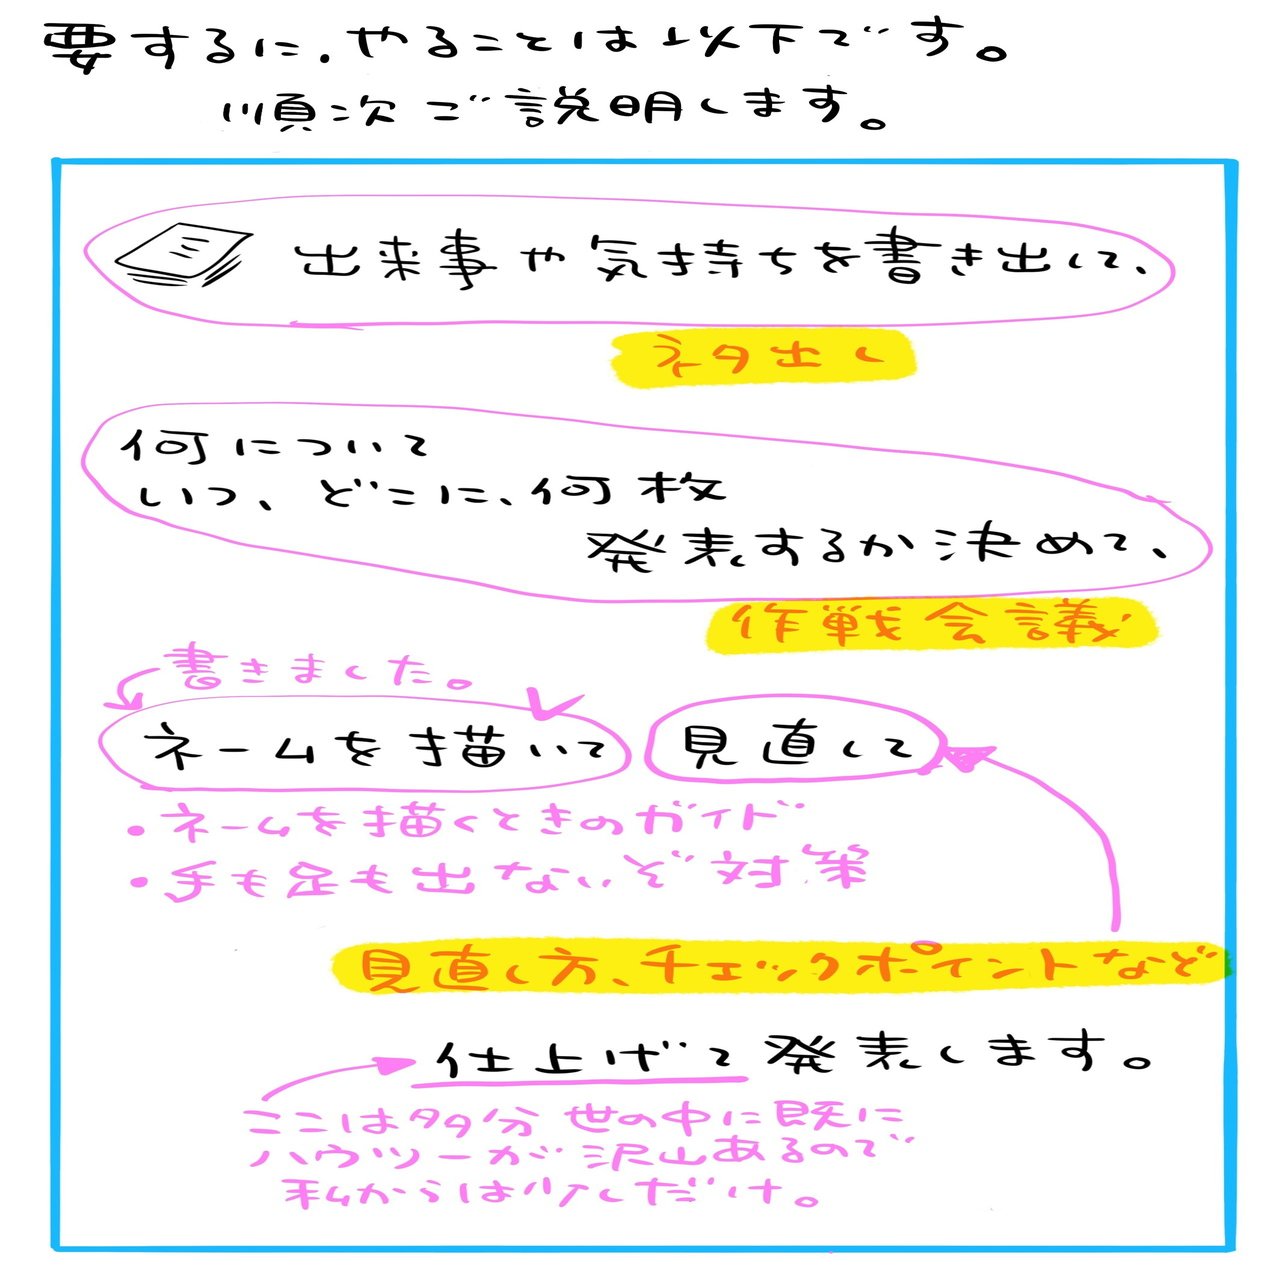 要するに、やることは以下です。
順次ご説明します。
出来事や気持ちを書き出して、
ネタ出し
何について
いつ、どこに、何枚
発表するか決めて、
作戦会議
書きました。
ネームを描いて 見直して
・ネームを描くときのガイド
・手も足も出ないぞ対策
見直し方、チェックポイントなど
仕上げて発表します。
ここは多分世の中に既に
ハウツーが沢山あるので
私からは少しだけ。